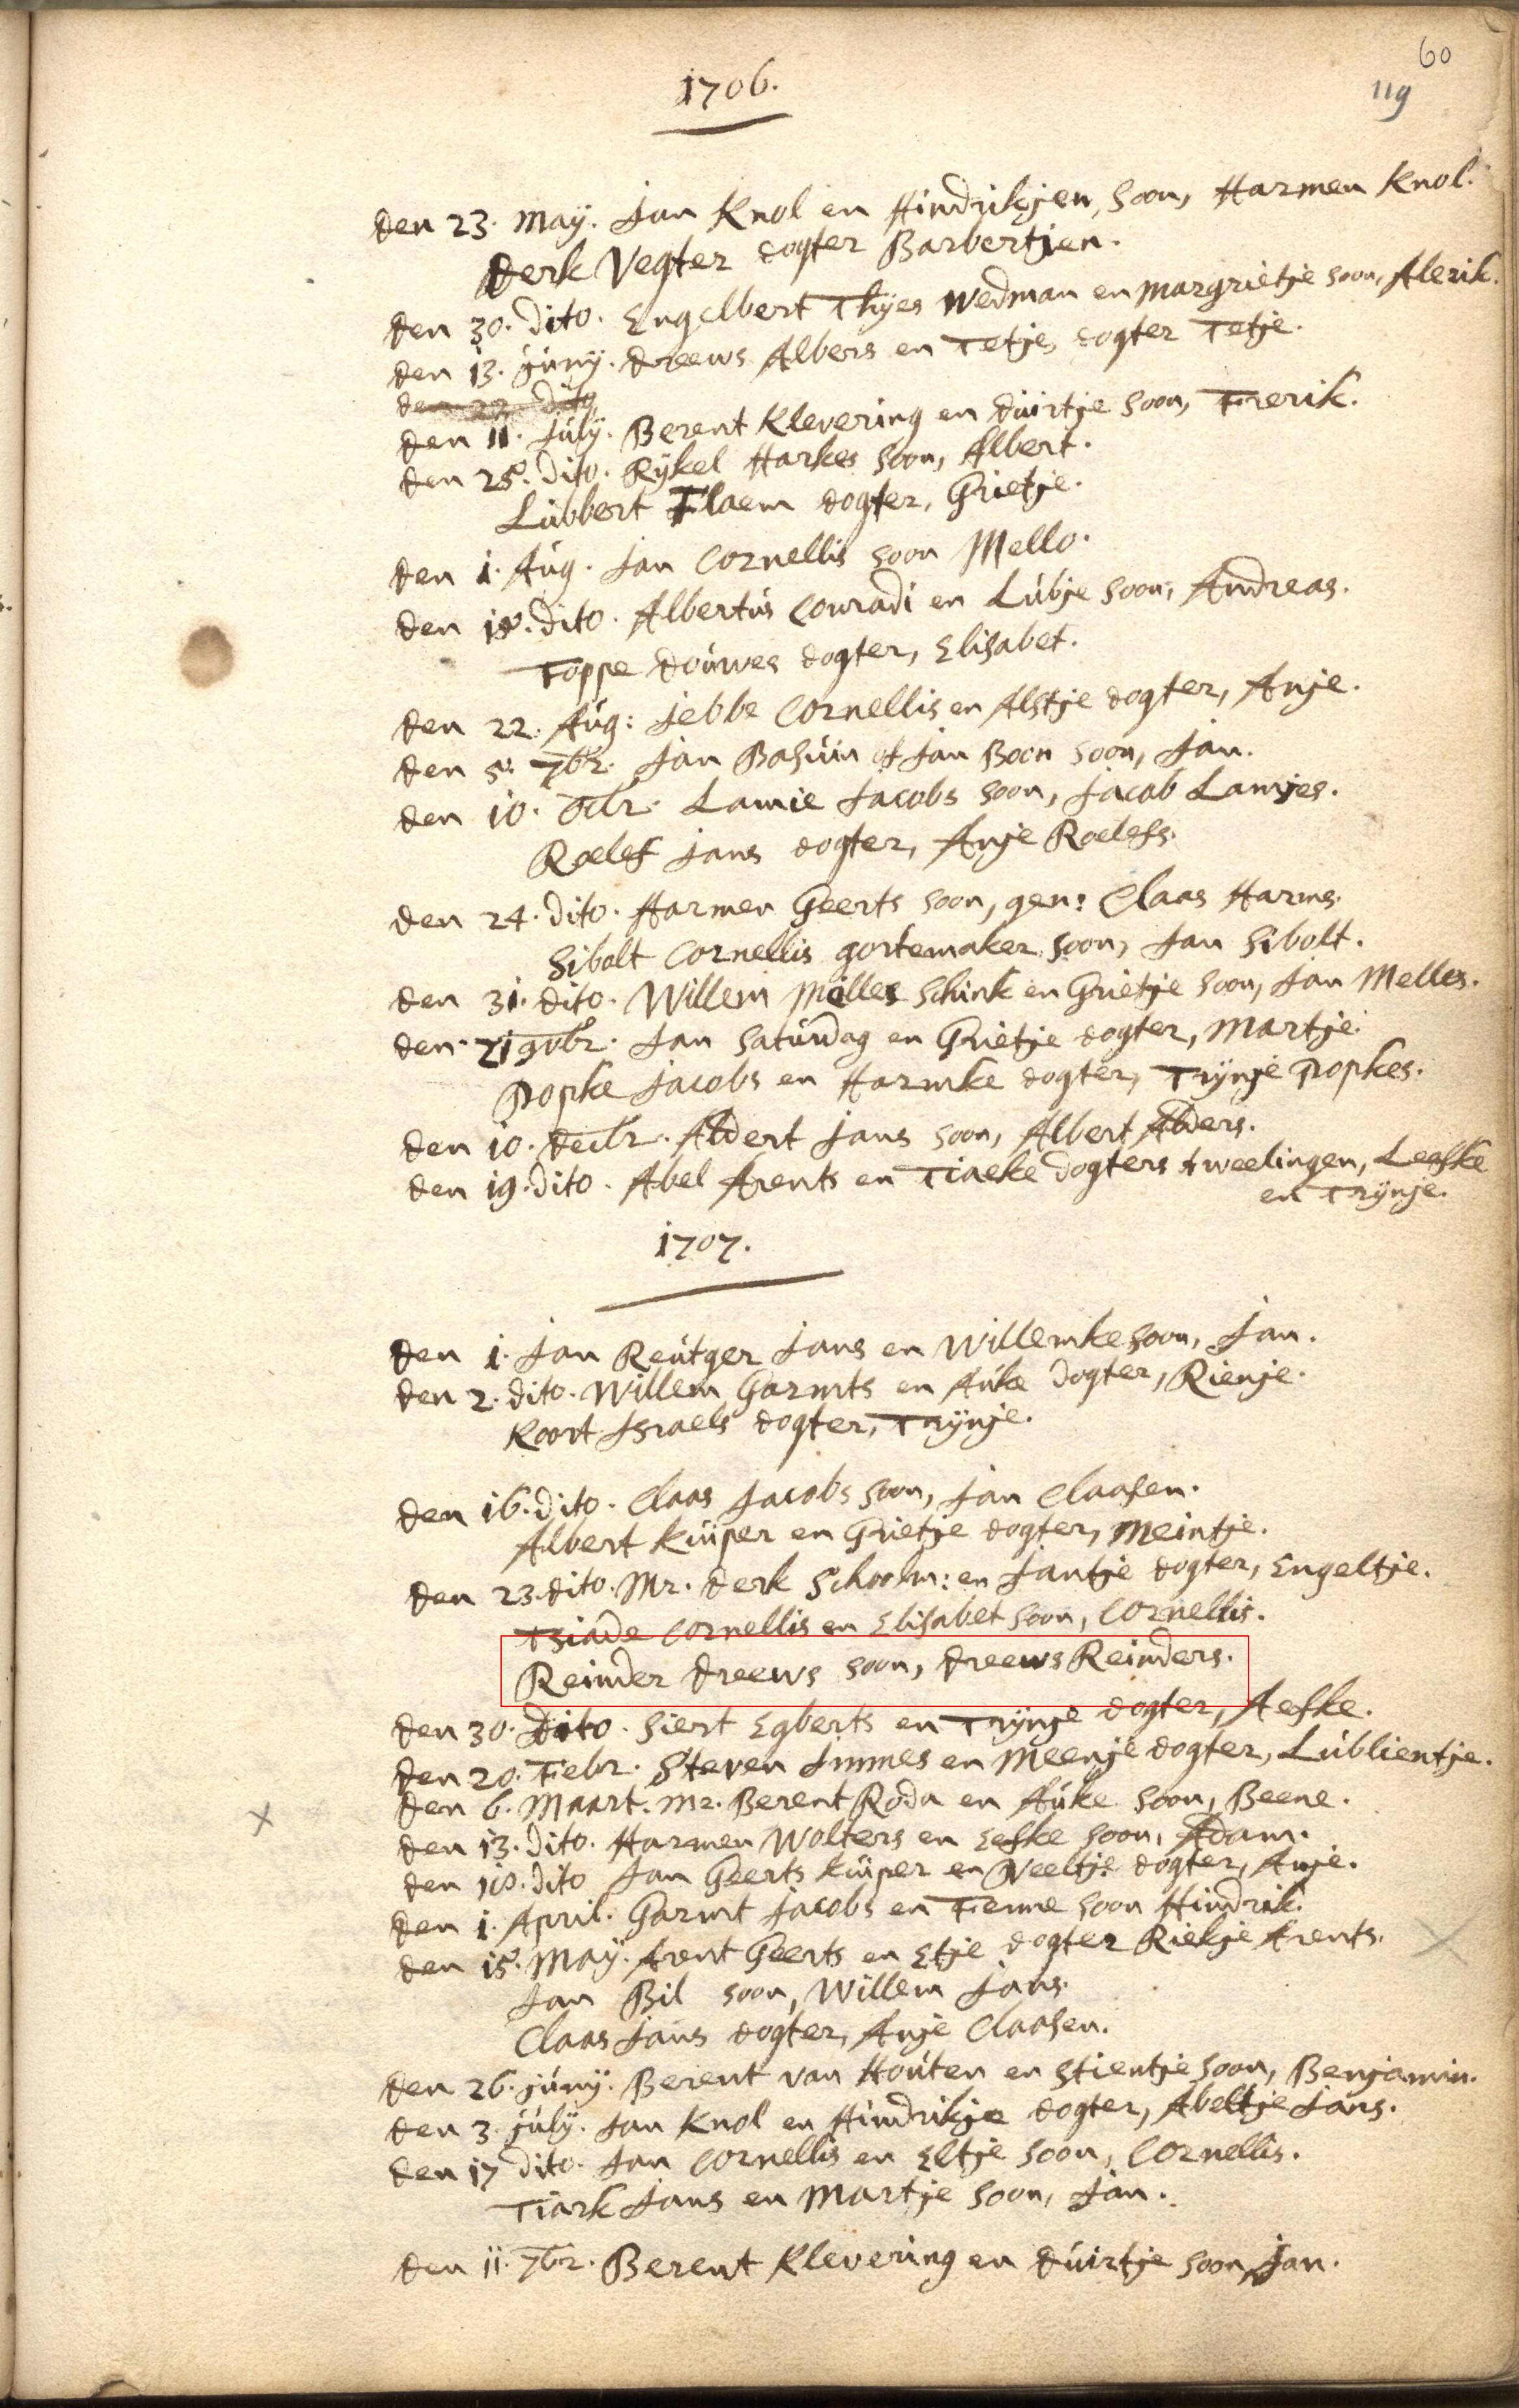 60
119
1706.
den 23. May. Jan Knol en Hindrikjen, soon, Harmen Knol.
Derk Vegter dogter Barbertjen.
den 30. dito. Engelbert Thyes Wedman en Margrietje soon, Alerik.
den 13. juny. Dreews Albers en Tetje, dogter Tetje.
den 22 dito
den 11. july. Berent Klevering en duirtje soon, Frerik.
den 25. dito. Rykel Harkes soon, Albert.
Lubbert Flaem dogter, Grietje.
den 1. Aug. Jan Cornellis soon Mello.
den 15. dito. Albertus Conradi en Lubje soon, Andreas.
Foppe douwes dogter, Elisabet.
den 22. Aug: Jebbe Cornellis en Alstje dogter, Anje.
den 5. 7br. Jan Basuin of Jan Boon soon, Jan.
den 10. Octr. Lamie Jacobs soon, Jacob Lamjes.
Roelef Jans dogter, Anje Roelefs.
den 24. dito. Harmen Geerts soon, gen: Claas Harms.
Sibolt Cornellis gortemaker soon, Jan Sibolt.
den 31. dito. Willem Melles Schink en Grietje soon, Jan Melles.
den 21 9vbr. Jan Saturdag en Grietje dogter, Martje.
Popke Jacobs en Harmke dogter, Trynje Popkes.
den 10. decbr. Aldert Jans soon, Albert Alders.
den 19. dito. Abel Arents en Tiaeke dogters tweelingen, Leefke
en Trynje.
1707.
den 1. Jan Reutger Jans en Willemke soon, Jan.
den 2. dito. Willem Garmts en Auke dogter, Rienje.
Koort Israels dogter, Trynje.
den 16. dito. Claas Jacobs soon, Jan Claasen.
Albert Kuiper en Grietje dogter, Meintje.
den 23. dito. Mr. Derk Schoolm: en Jantje dogter, Engeltje.
Tsiade Cornellis en Elisabet soon, Cornellis.
Reinder Dreews soon, Dreews Reinders.
den 30. Dito. Siert Egberts en Trynje dogter, Aefke.
den 20. Febr. Steven Jmmes en Meenje dogter, Lublientje.
den 6. Maart. Mr. Berent Roda en Auke soon, Beene.
den 13. dito. Harmen Wolters en Eefke soon, Adam.
den dito Jan Geerts Kuiper en Neeltje dogter, Anje.
den 1. April. Garmt Jacobs en Fenne soon Hindrik.
den 15. May. Arent Geerts en Etje dogter Riekje Arents.
Jan Bil soon, Willem Jans.
Claas Jans dogter, Anje Claasen.
den 26. juny. Berent van Houten en Stientje soon, Benjamin.
den 3. july. Jan Knol en Hindrikje dogter, Abeltje Jans.
den 17 dito. Jan Cornellis en Eltje soon, Cornellis.
Tiark Jans en Martje soon, Jan.
den 11. 7br. Berent Klevering en duirtje soon, Jan.